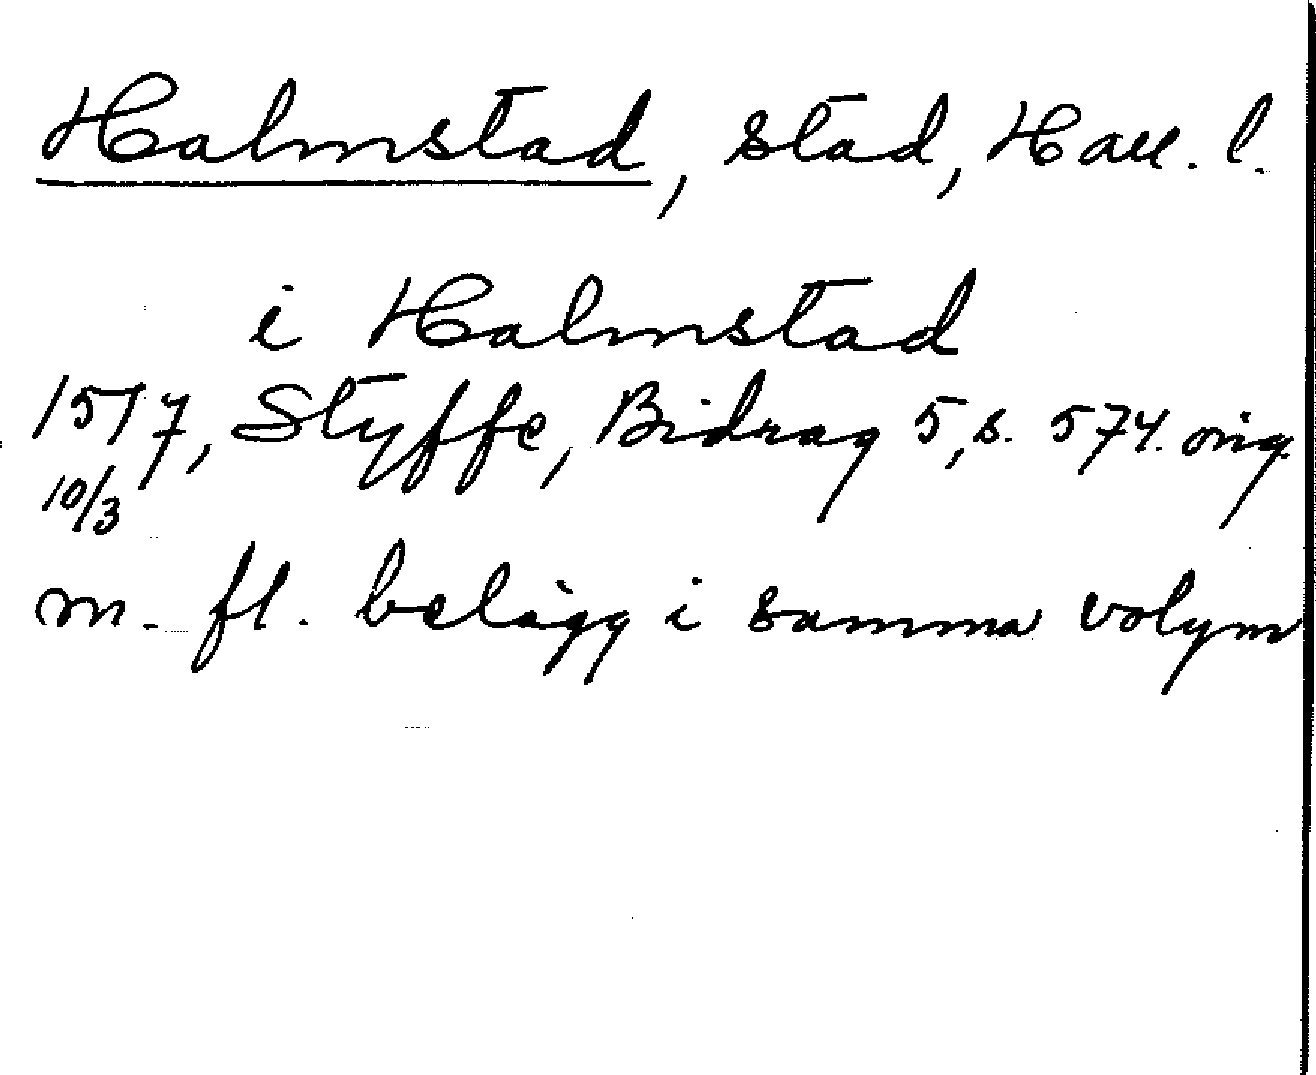 Halmstad, stad, Hall. l.
i Halmstad
1517, Styffe, Bidrag 5, s. 574. orig.
10/3
m. fl. belägg i samma volym